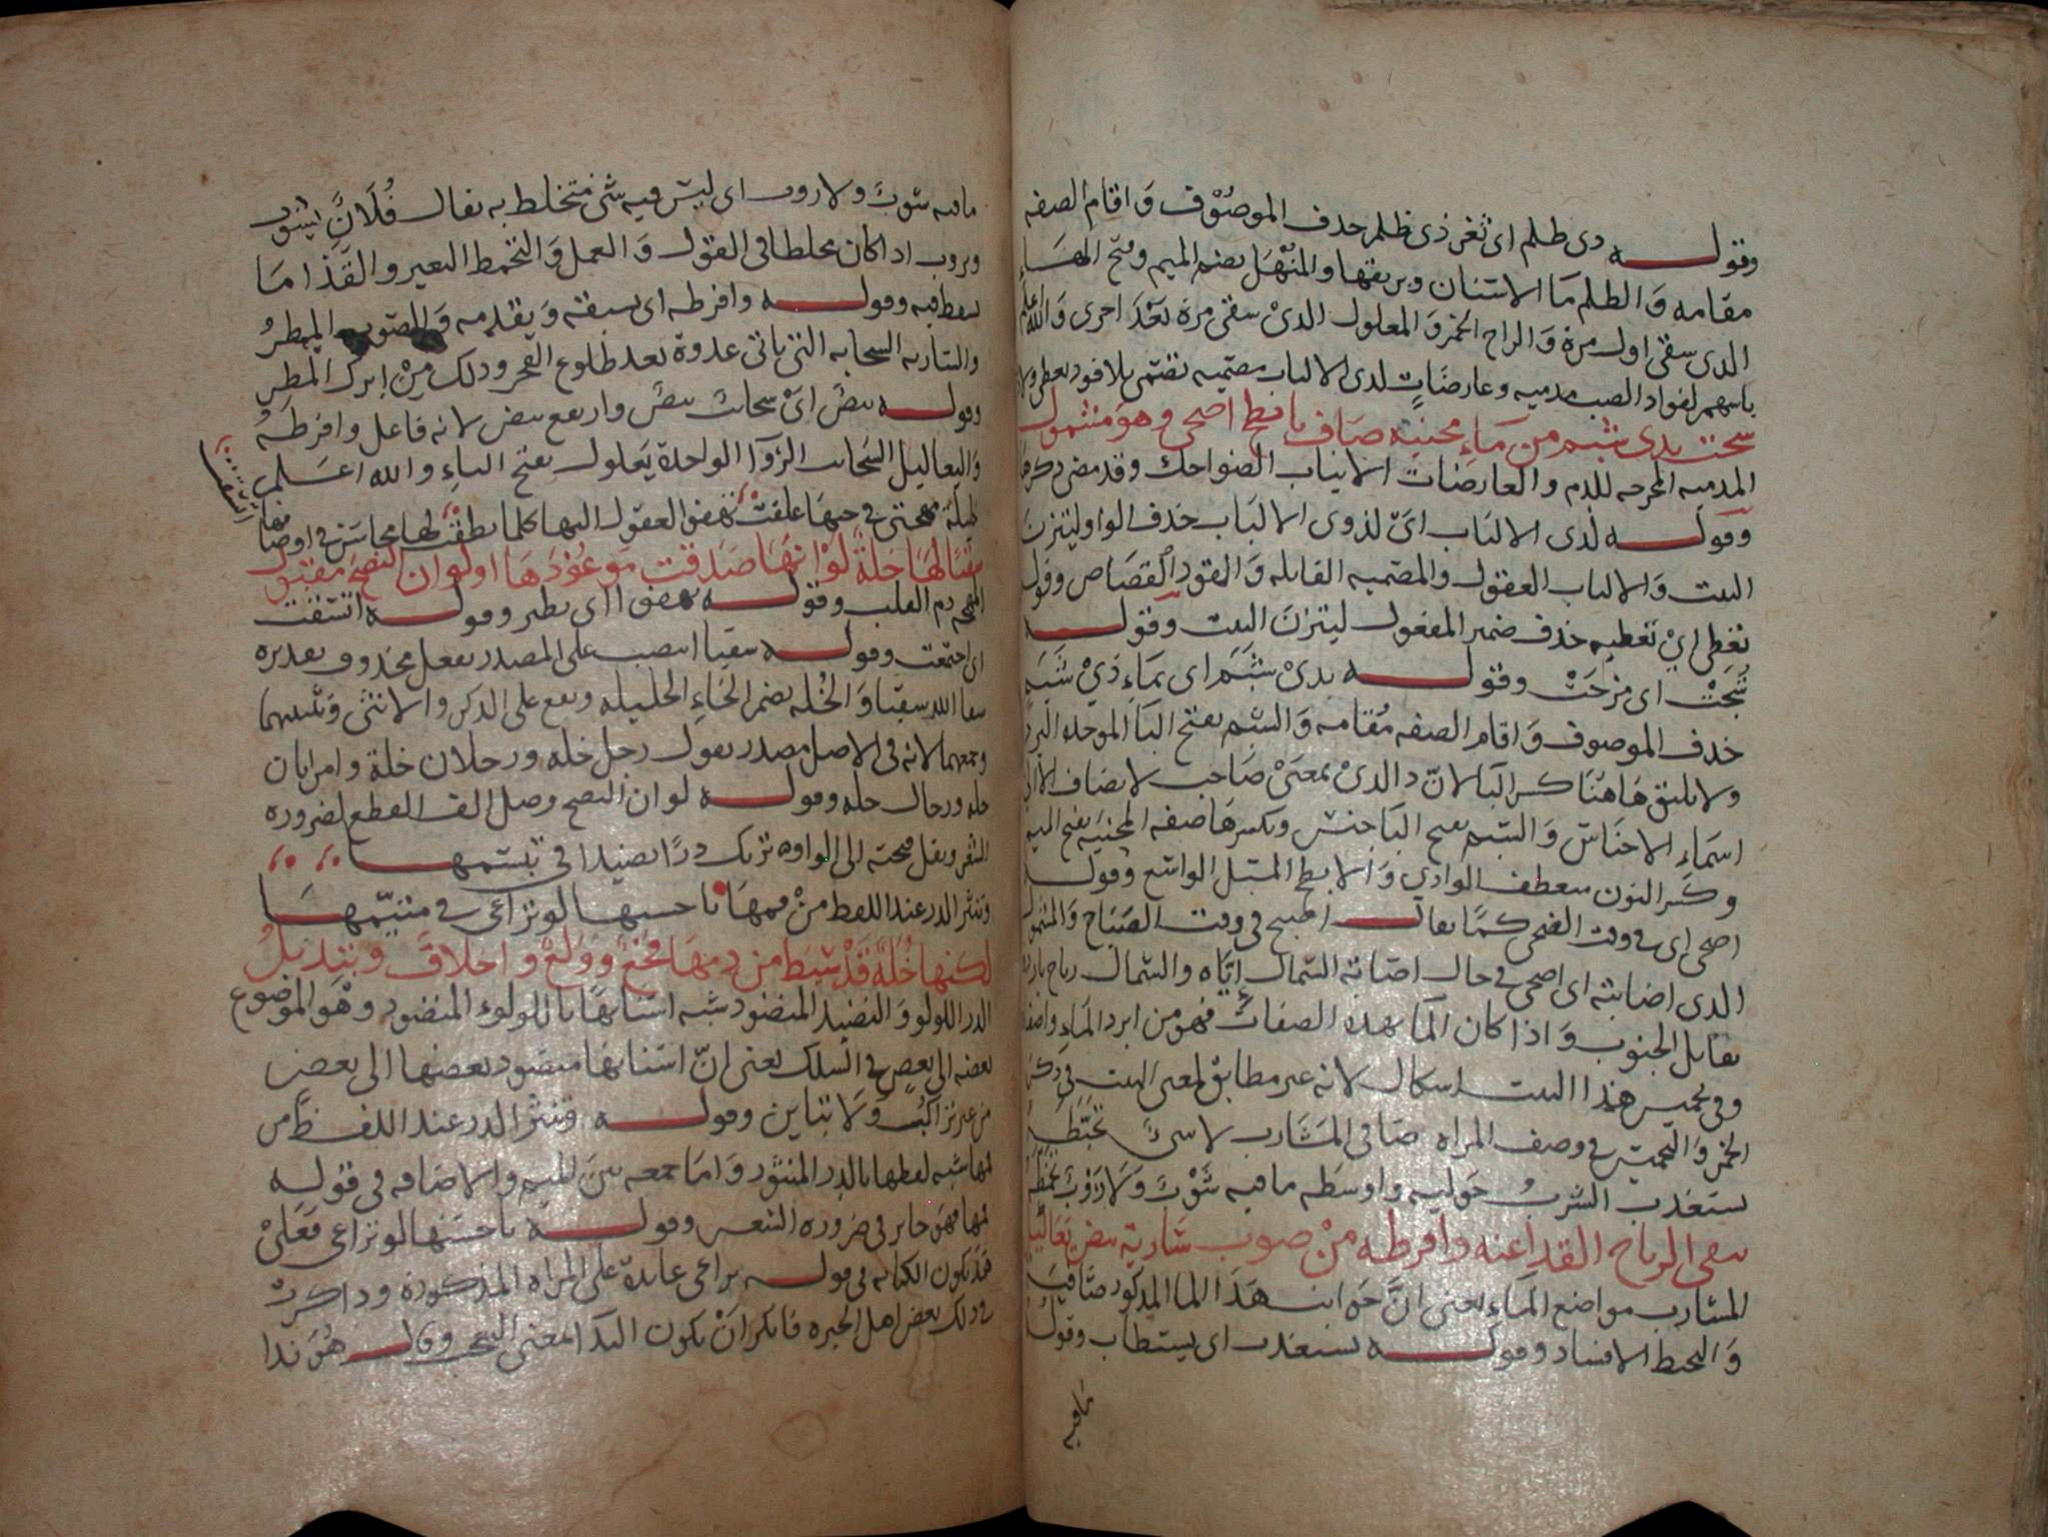 وقوله ذي ظلم اي ثغر ذي ظلم حذف الموصوف واقام الصفه
مقامه والظلم ما الاسنان وبريقها والمنهل بضم الميم وفتح الهاء
الذي سقى اول مرة والراح الخمر والمعلول الذي سقى مرة بعد اخرى والله اعلم
باسهم لفواد الصب مدميه وعارضات لدى الالباب مصميه تصمى بلا قود يعطى ولا
شجت بذي شبم من ماء محنيه صاف بابطح اضحى وهو مشمول
المدميه المخرجه للدم والعارضات الانياب الضواحك وقد مضى ذكرها
وقوله لدى الالباب اي لذوي الالباب حذف الواو ليتزن
البيت والالباب العقول والمصميه القاتله والقود القصاص وقوله
يعطى اي تعطيه حذف ضمير المفعول ليتزن البيت وقوله
شجت اي مزجت وقوله بذي شبم اي بماء ذي شبم
حذف الموصوف واقام الصفه مقامه والشبم بفتح البا الموحده البرد
ولا يليق هاهنا كسر البا لان ذا الذي بمعنى صاحب لا يضاف الا الى
اسماء الاجناس والشبم بفتح البا جنس وبكسرها صفه المحنيه بفتح الميم
وكسر النون منعطف الوادي والابطح المسيل الواسع وقوله
اضحى اي في وقت الضحى كما يقال اصبح في وقت الصباح والمشمول
الذي اصابته اي اضحى في حال اصابة الشمال اياه والشمال رياح بارده
تقابل الجنوب واذا كان الما بهذه الصفات فهو من ابرد الماء واصفا
وفي تخميس هذا البيت اشكال لانه غير مطابق لمعنى البيت في ذكر
الخمر والتخميس في وصف المراه صافي المشارب لا شئ تخبطه
يستعذب الشرب حوليه واوسطه ما فيه شوب ولا روب يخمطه
تنفى الرياح القذا عنه وافرطه من صوب سارية بيض يعاليل
المشارب مواضع الماء يعني ان جوانب هذا الما المذكور صافيه
والتخبط الافساد وقوله يستعذب اي يستطاب وقوله
مافيه
مافيه شوب ولا روب اي ليس فيه شئ مختلط به يقال فلان يشوب
ويروب اذا كان مخلطا في القول والعمل والتخمط التغير والقذا ما
يسقط فيه وقوله وافرطه اي سبقه ويقدمه والصوب المطر
والساريه السحابه التي ياتي غدوة بعد طلوع الفجر وذلك من ابرك المطر
وقوله بيض اي سحاب بيض وارتفع بيض لانه فاعل وافرطه
واليعاليل السحاب الروا الواحدة يعلول بفتح الياء والله اعلم
مهجتي في حبها علقت تهفو العقول اليها كلما نطقت لها محاسن في اوصافها
اتسقت
سقيا لها خلة لو انها صدقت موعودها او لو ان النصح مقبول
المهجه دم القلب وقوله تهفوا اي يطير وقوله اتسقت
اي اجتمعت وقوله سقيا انتصب على المصدر بفعل محذوف تقديره
سقا الله سقيا والخله بضم الخاء الخليله ويقع على الذكر والانثى وتثنيتهما
وجمعهما لانه في الاصل مصدر يقول رجل خله ورجلان خلة وامراتان
خله ورجال خله وقوله لو ان النصح وصل الف القطع لضروره
الشعر ونقل فتحته الى الواو تريك درا نضيدا في تبسمها
وتنثر الدر عند اللفظ من فمها يا حسنها لو تراعي في متيمها
لكنها خلة قد سيط من دمها فجع وولع واخلاف وتبديل
الدر اللولو والنضيد المنضود شبه اسنانها باللولوء المنضود وهو الموضوع
بعضه الى بعض في السلك يعني ان اسنانها منضود بعضها الى بعض
من غير تراكب ولا تباين وقوله وتنثر الدر عند اللفظ من
فمها شبه لفظها بالدر المنثور واما جمعه بين الميم والاضافه في قوله
فمها فهو جايز في ضروره الشعر وقوله يا حسنها لو تراعي فعلى
قد يكون الكنايه في قوله تراعي عايدة على المراه المذكورة وذاكرت
في ذلك بعض اهل الخبره فانكر ان يكون الندا لمعنى التعجب وقال هو ندا